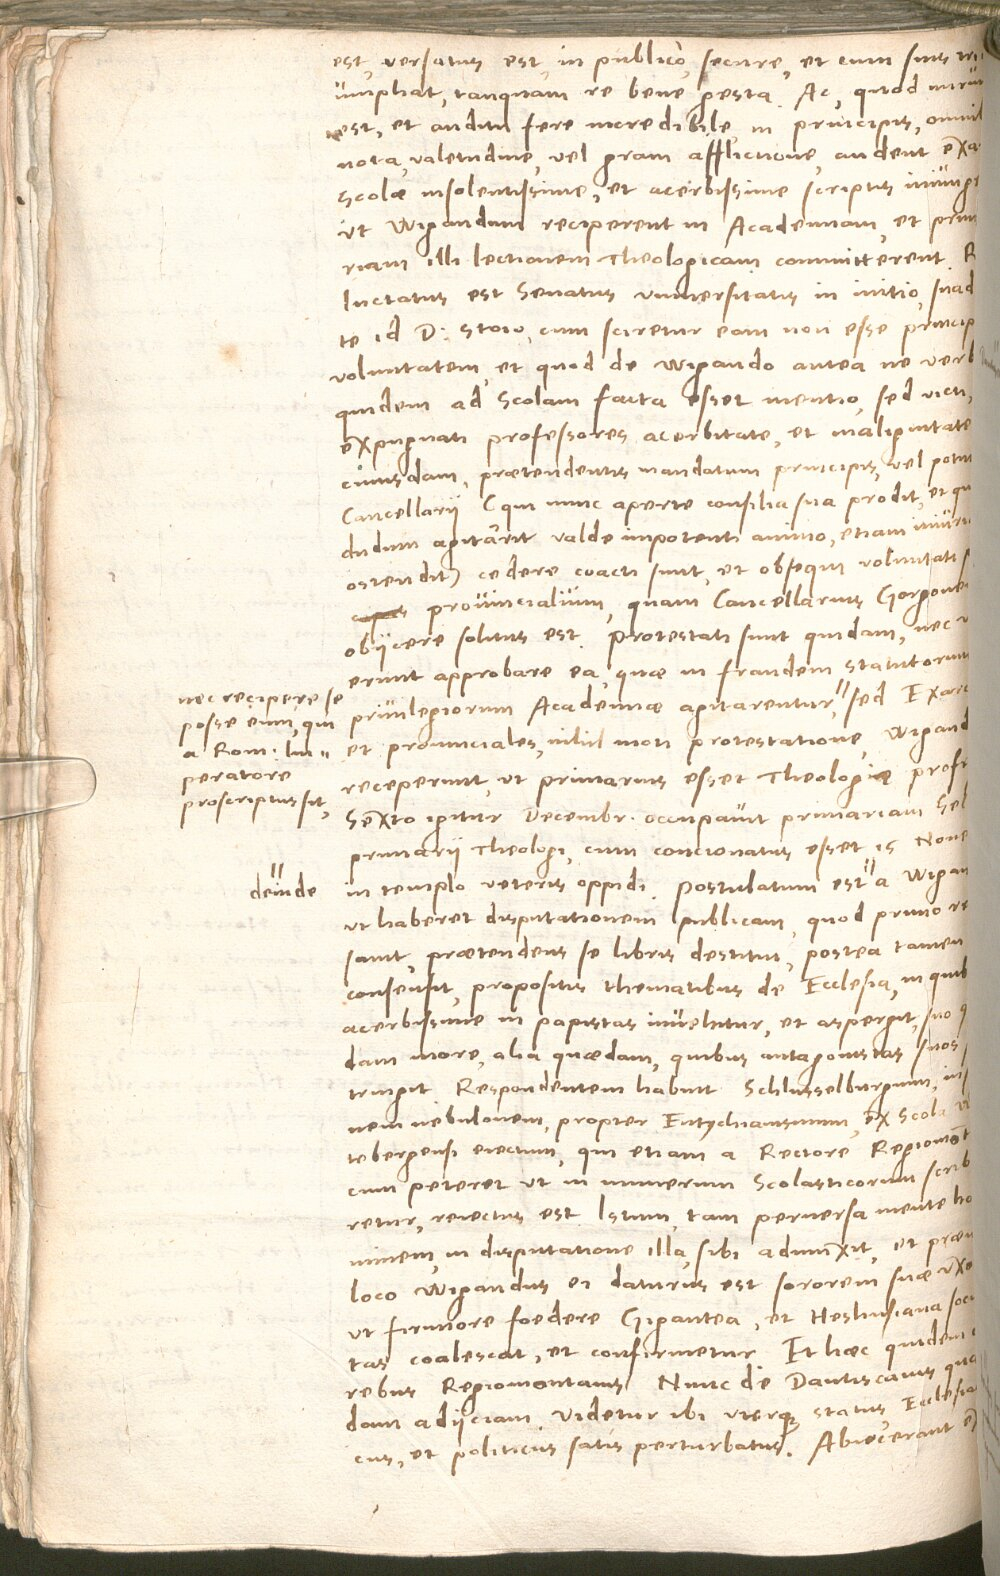 est, versatus est, in publico, secure, et cum suis tri
umphat, tanquam re bene gesta. Ac, quod mirum
est, et auditu fere incredibile, in principis, omnib
nota, valetudine, vel gravi afflictione, audent exa
Scolæ insolentissime, et acerbissime scriptis iniunge
ut Wigandum reciperent in Academiam, et prim
riam illi lectionem Theologicam committerent. R
luctatus est Senatus universitatis in initio, suad
te id D: Stoio, cum sciretur eam non esse princip
voluntatem, et quod de Wigando antea ne verb
quidem ad Scolam facta esset mentio, sed victi,
expugnati professores acerbitate, et malignitate
cuiusdam, prætendentis mandatum principis, vel potiu
Cancellarij (qui nunc aperte consilia sua prodit, et qu
dudum agitarit valde impotenti animo, etiam iniuri
ostendit) cedere coacti sunt, et obsequi voluntati
provincialium, quam Cancellarius Gorgone
obijcere solitus est. Protestati sunt quidam, nec v
erint approbare ea, quæ in fraudem statutorum
privilegiorum Academiæ agitarentur, sed Exarc
nec recipere se
posse eum, qui
a Rom: Im=
peratore
proscriptus sit,
et provinciales, nihil moti protestatione, Wigand
receperunt, ut primarius esset Theologiæ profe
Sexto igitur Decembr. occupavit primariam Sel
primarij Theologi, cum concionatus esset 15 Nove
in templo veteris oppidi. Postulatum est a Wigan
deinde
ut haberet disputationem publicam, quod primo re
savit, prætendens se libris destitui, postea tamen
consensit, propositis thematibus de Ecclesia, in quib
acerbissime in papistas invehitur, et aspergit, suo q
dam more, alia quædam, quibus antagonistas suos
tringit. Respondentem habuit Schlusselburgium, in
nem nebulonem, propter Eutychianismum, ex Scola Vi
tebergensi eiectum, qui etiam a Rectore Regiomont
cum peteret ut in numerum Scolasticorum scrib
retur, reiectus est. Istum, tam perversa mente ho
minem, in disputatione illa, sibi adiunxit, et præm
loco Wigandus ei daturus est sororem suæ uxo
ut firmiore foedere Gigantea, et Heshusiana soc
tas coalescat, et confirmetur. Et hæc quidem
rebus Regiomontanis. Nunc de Dantiscanis quæ
dam adijciam. Videtur ibi uterque status, Ecclesia
cus, et politicus satis perturbatus. Abiecerant